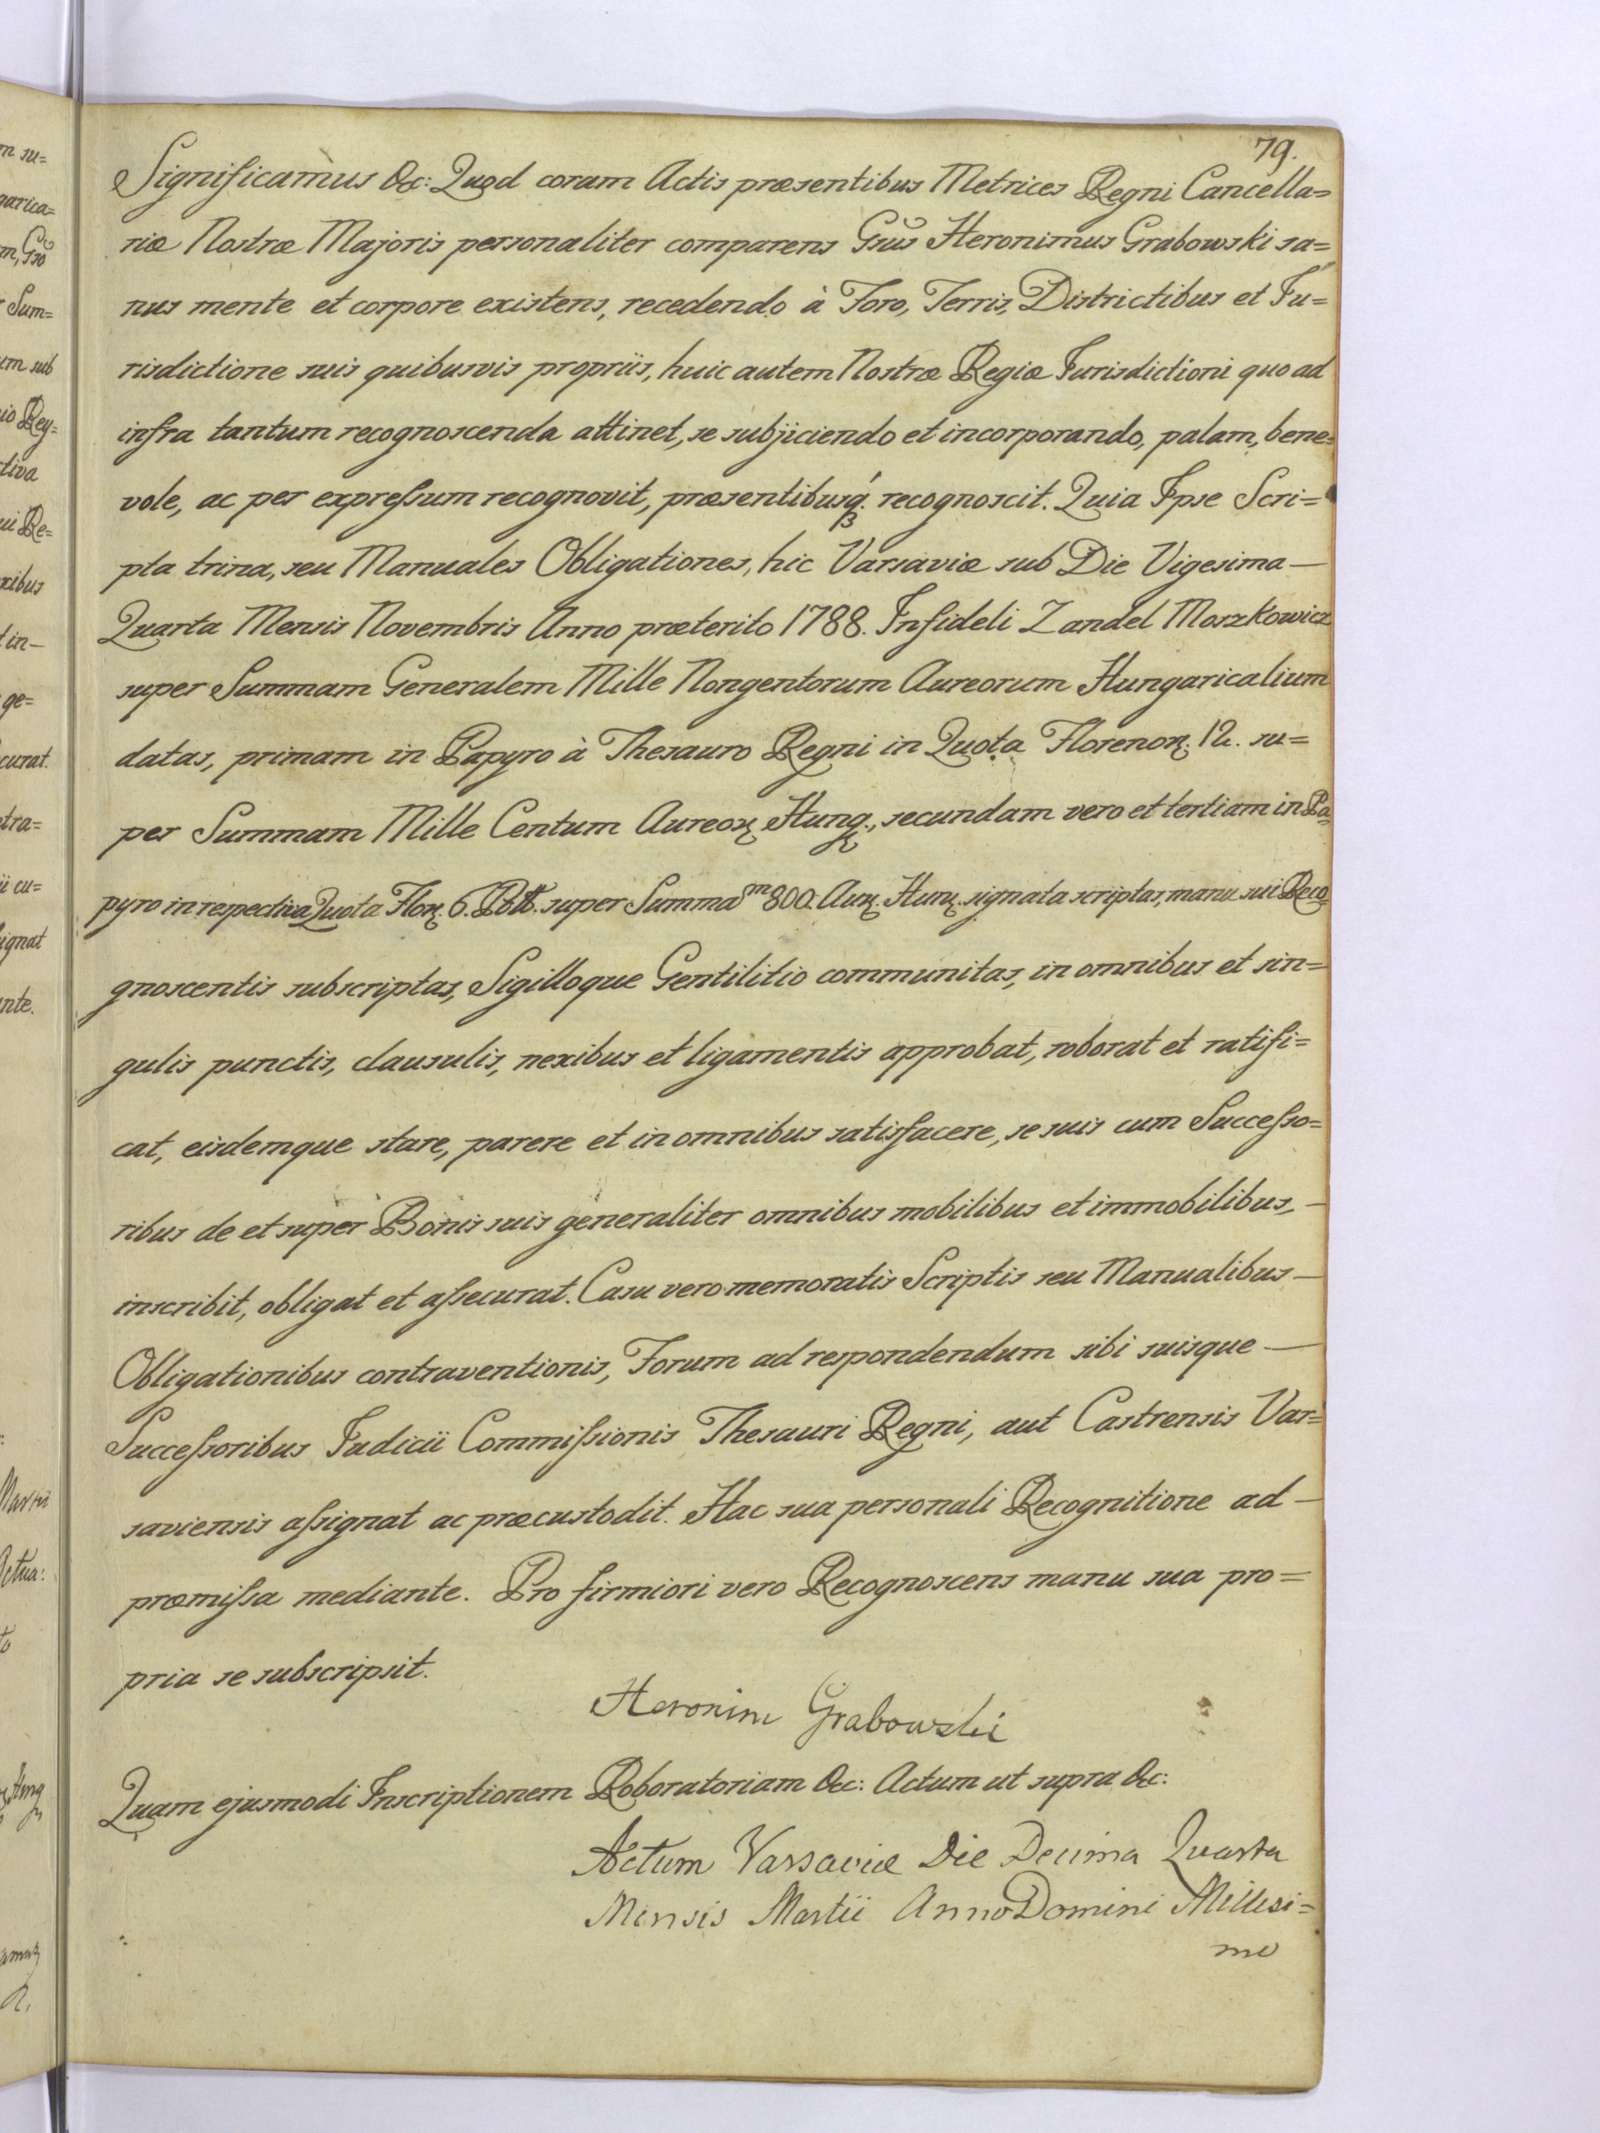 79.
Significamus &c: Quod coram Actis præsentibus Metrices Regni Cancella=
riæ Nostræ Majoris personaliter comparens Gsus Heronimus Grabowski sa=
nus mente et corpore existens, recedendo à Foro, Terris, Districtibus et Ju=
risdictione suis quibusvis propriis, huic autem Nostræ Regiæ Jurisdictioni quo ad
infra tantum recognoscenda attinet, se subjiciendo et incorporando, palam, bene=
vole, ac per expreſsum recognovit, præsentibusq. recognoscit. Quia Ipse Scri=
pta trina, seu Manuales Obligationes, hic Varsaviæ sub Die Vigesima —
Quarta Mensis Novembris Anno præterito 1788. Infideli Zandel Moszkowicz
super Summam Generalem Mille Nongentorum Aureorum Hungaricalium
datas, primam in Papyro à Thesauro Regni in Quota Florenoꝝ. 12. su=
per Summam Mille Centum Aureoꝝ Hung., secundam vero et tertiam in Pa=
pyro in respectiva Quota Floꝝ. 6. super Summam 800. Auꝝ. Hunꝝ. signata scriptas, manu sui Reco
gnoscentis subscriptas, Sigilloque Gentilitio communitas, in omnibus et sin=
gulis punctis, clausulis, nexibus et ligamentis approbat, roborat et ratifi=
cat, eisdemque stare, parere et in omnibus satisfacere, se suis cum Succeſso=
ribus de et super Bonis suis generaliter omnibus mobilibus et immobilibus, —
inscribit, obligat et aſsecurat. Casu vero memoratis Scriptis seu Manualibus —
Obligationibus contraventionis, Forum ad respondendum sibi suisque —
Succeſsoribus Judicii Commiſsionis Thesauri Regni, aut Castrensis Var=
saviensis aſsignat ac præcustodit. Hac sua personali Recognitione ad —
præmiſsa mediante. Pro firmiori vero Recognoscens manu sua pro=
pria se subscripsit.
Heronim Grabowski
Quam ejusmodi Inscriptionem Roboratoriam &c: Actum ut supra &c:
Actum Varsaviæ Die Decima Quarta
Mensis Martii Anno Domini Millesi=
mo